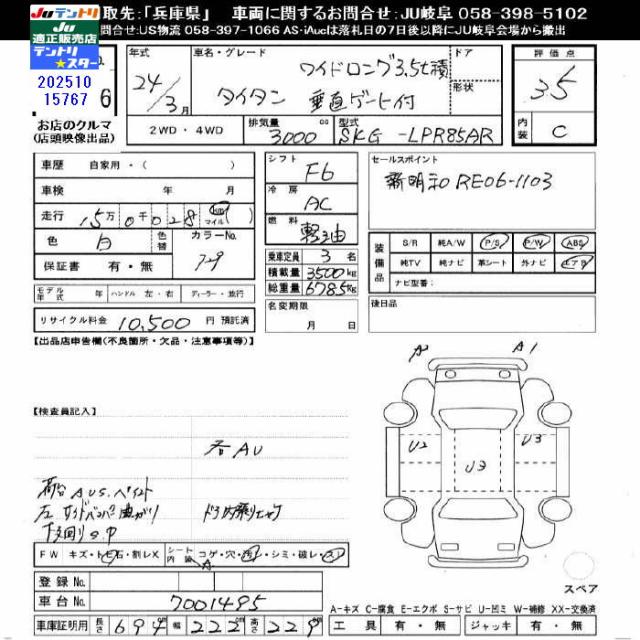 取先:「兵庫県」 車両に関するお問合せ:JU岐阜 058-398-5102
問合せ:JS物流 058-397-1066 AS-iAucは落札日の7日後以降にJU岐阜会場から搬出
JUテントリ
JU
適正販売店
テントリ
スター
202510
15767
6
お店のクルマ
(店頭映像出品)
年式 24/3月
車名・グレード ワイドロング3.5t積
タイタン 垂直ゲート付
ドア
形状
2WD・4WD
排気量 3000 cc
型式 SKG-LPR85AR
評価点 3.5
内装 C
車歴 自家用・( )
車検 年 月
走行 15万0千028 km マイル
色 白 色替 カラーNo.
保証書 有・無
モデル年式 年 ハンドル 左・右 ディーラー・並行
リサイクル料金 10,500 円 預託済
シフト F6
冷房 AC
燃料 軽油
乗車定員 3 名
積載量 3500 kg
総重量 6785 kg
名変期限 月 日
セールスポイント
新明和 RE06-1103
装備品 S/R 純A/W P/S P/W ABS
純TV 純ナビ 革シート 外ナビ エアB
ナビ型番:
後日品
【出品店申告欄(不良箇所・欠品・注意事項等)】
【検査員記入】
各AU
荷台AUS.ペイント
左サイドバンパー曲がり
下廻りS.P
A2 A1
U2 U3 U3
スペア
FW キズ・トビ石・割レX シート内装 コゲ・穴・汚・シミ・破レ・スレ
A
登録No.
車台No. 7001495
車庫証明用 長さ 694 幅 222 高さ 229
A-キズ C-腐食 E-エクボ S-サビ U-凹ミ W-補修 XX-交換済
工具 有・無 ジャッキ 有・無